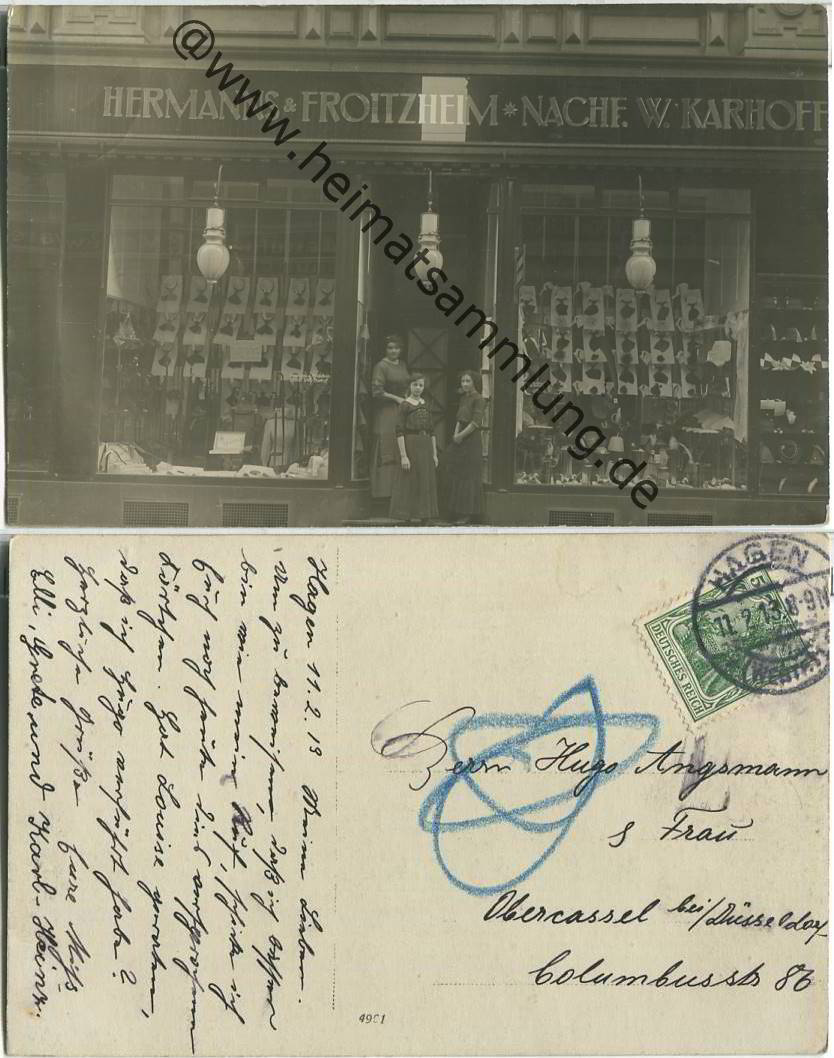 HERMANNS & FROITZHEIM * NACHF. W. KARHOFF
@www.heimatsammlung.de
HAGEN
11.2.13.8-9N
(WESTF.)
5
DEUTSCHES REICH
Herrn Hugo Angsmann
& Frau
Obercassel bei/Düsseldorf
Columbusstr 86
4961
Hagen 11.2.13 Meine Lieben.
Um zu beweisen, daß ich besser
bin wie mein Ruf, schicke ich
Euch noch heute
Hat Louise geraten,
daß ich Hugo verküßt habe?
Herzliche Grüße Eure
Elli, Grete und Karl-Heinz.